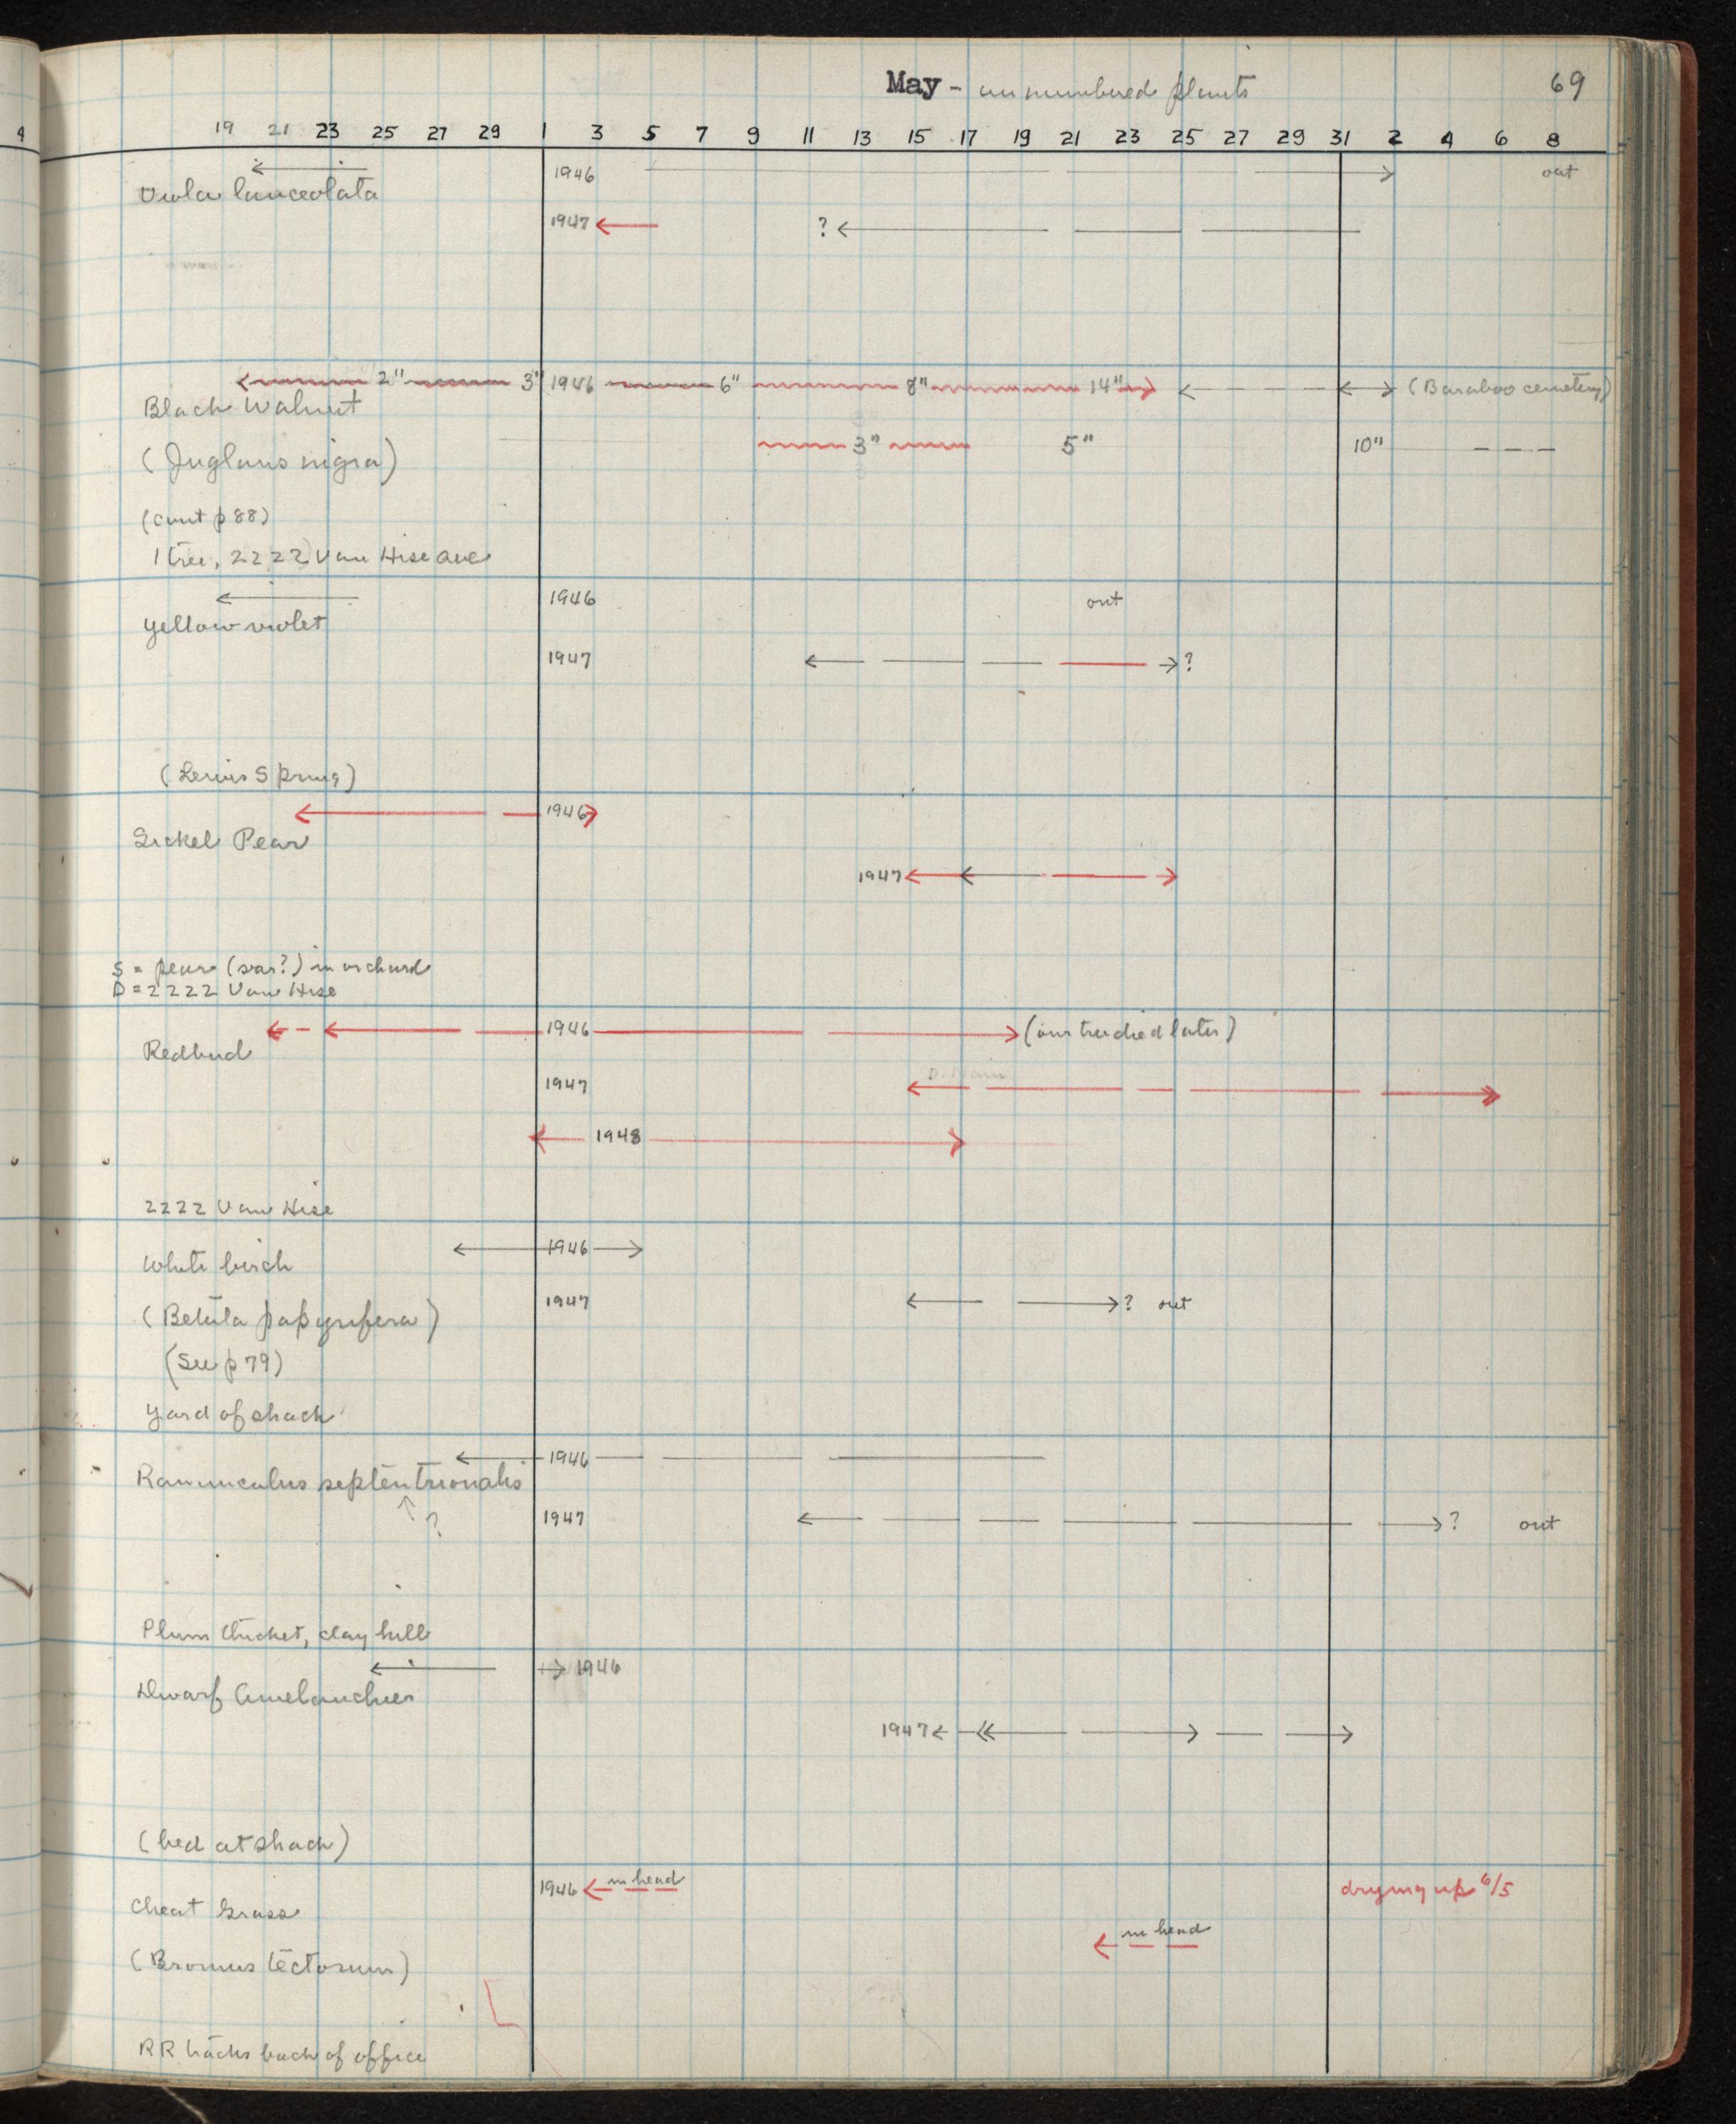 4
May - unnumbered plants 69
19 21 23 25 27 29 1 3 5 7 9 11 13 15 17 19 21 23 25 27 29 31 2 4 6 8
1946 out
Viola lanceolata
1947 ?
2" 3" 1946 6" 8" 14" (Baraboo cemetery)
Black Walnut
3" 5" 10"
(Juglans nigra)
(cont p 88)
1 tree, 2222 Van Hise Ave
1946 out
Yellow violet
1947 ?
(Lewis Spring)
1946
Seckel Pear
1947
S = pear (var?) in orchard
D = 2222 Van Hise
1946 (our tree died later)
Redbud
1947
1948
2222 Van Hise
1946
White birch
1947 ? out
(Betula papyrifera)
(See p 79)
Yard of shack
1946
Ranunculus septentrionalis
?
1947 ? out
Plum thicket, clay hill
1946
Dwarf Amelanchier
1947
(bed at shack)
1946 in head drying up 6/5
Cheat Grass
in head
(Bromus tectorum)
RR tracks back of office